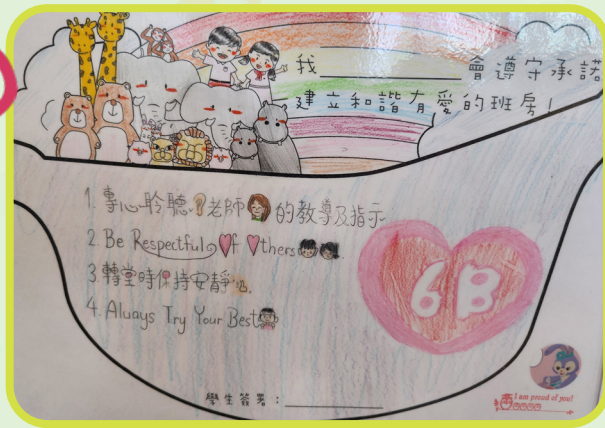 我 ____________ 會遵守承諾
建立和諧有愛的班房!
1. 專心聆聽老師的教導及指示
2. Be Respectful Of Others
3. 轉堂時保持安靜
4. Always Try Your Best
6B
學生簽署:____________
I am proud of you!